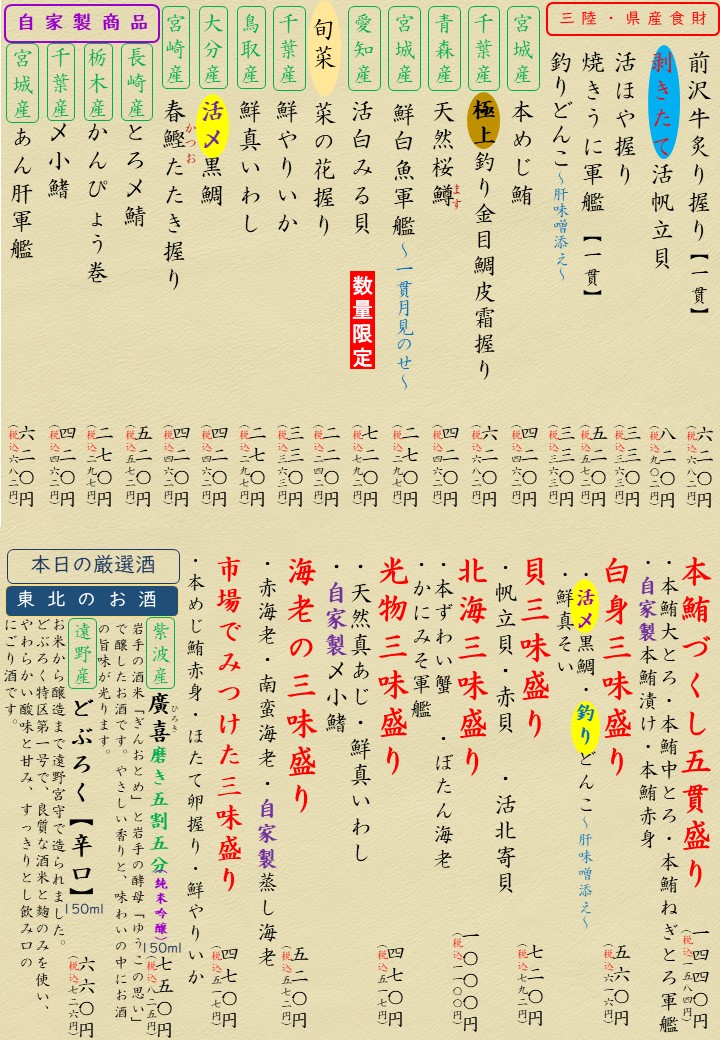 三陸・県産食財
前沢牛炙り握り【一貫】
六二〇円
(税込六八二円)
剥きたて活帆立貝
八二〇円
(税込九〇二円)
活ほや握り
三三〇円
(税込三六三円)
焼きうに軍艦【一貫】
五二〇円
(税込五七二円)
釣りどんこ～肝味噌添え～
三三〇円
(税込三六三円)
宮城産
本めじ鮪
四二〇円
(税込四六二円)
千葉産
極上釣り金目鯛皮霜握り
六二〇円
(税込六八二円)
青森産
天然桜鱒
ます
四二〇円
(税込四六二円)
宮城産
鮮白魚軍艦～一貫月見のせ～
二七〇円
(税込二九七円)
愛知産
活白みる貝
数量限定
七二〇円
(税込七九二円)
旬菜
菜の花握り
二二〇円
(税込二四二円)
千葉産
鮮やりいか
三三〇円
(税込三六三円)
鳥取産
鮮真いわし
二七〇円
(税込二九七円)
大分産
活〆黒鯛
四二〇円
(税込四六二円)
宮崎産
春鰹たたき握り
かつお
四二〇円
(税込四六二円)
自家製商品
長崎産
とろ〆鯖
五二〇円
(税込五七二円)
栃木産
かんぴょう巻
二七〇円
(税込二九七円)
千葉産
〆小鰭
四二〇円
(税込四六二円)
宮城産
あん肝軍艦
六二〇円
(税込六八二円)
本鮪づくし五貫盛り
一四四〇円
(税込一五八四円)
・本鮪大とろ・本鮪中とろ・本鮪ねぎとろ軍艦
・自家製本鮪漬け・本鮪赤身
白身三味盛り
五六〇円
(税込六一六円)
・活〆黒鯛・釣りどんこ～肝味噌添え～
・鮮真そい
貝三味盛り
七二〇円
(税込七九二円)
・帆立貝・赤貝・活北寄貝
北海三味盛り
一〇〇〇円
(税込一一〇〇円)
・本ずわい蟹・ぼたん海老
・かにみそ軍艦
光物三味盛り
四七〇円
(税込五一七円)
・天然真あじ・鮮真いわし
・自家製〆小鰭
海老の三味盛り
五二〇円
(税込五七二円)
・赤海老・南蛮海老・自家製蒸し海老
市場でみつけた三味盛り
四七〇円
(税込五一七円)
・本めじ鮪赤身・ほたて卵握り・鮮やりいか
本日の厳選酒
東北のお酒
紫波産
廣喜磨き五割五分(純米吟醸)150ml
ひろき
七五〇円
(税込八二五円)
岩手の酒米「ぎんおとめ」と岩手の酵母「ゆうこの思い」
で醸したお酒です。やさしい香りと、味わいの中にお酒
の旨味が光ります。
遠野産
どぶろく【辛口】150ml
六六〇円
(税込七二六円)
お米から醸造まで遠野宮守で造られました。
どぶろく特区第一号で、良質な酒米と麹のみを使い、
やわらかい酸味と甘み、すっきりとし飲み口の
にごり酒です。